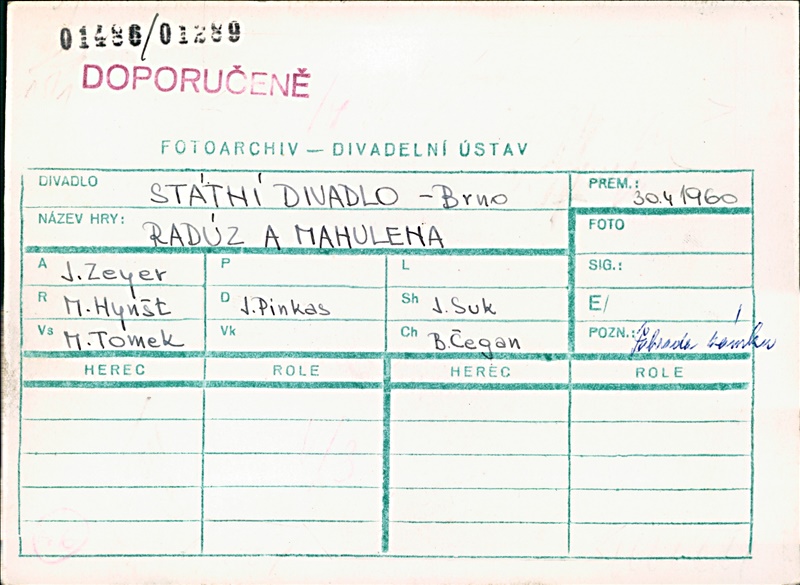 01486/01289
DOPORUČENĚ
FOTOARCHIV — DIVADELNÍ ÚSTAV
DIVADLO STÁTNÍ DIVADLO - Brno
PREM.: 30.4 1960
NÁZEV HRY: RADÚZ A MAHULENA
FOTO
A J. Zeyer P L
SIG.:
R M. Hynšt D J. Pinkas Sh J. Suk
E/
Vs M. Tomek Vk Ch B. Čegan
POZN.:
HEREC ROLE HEREC ROLE